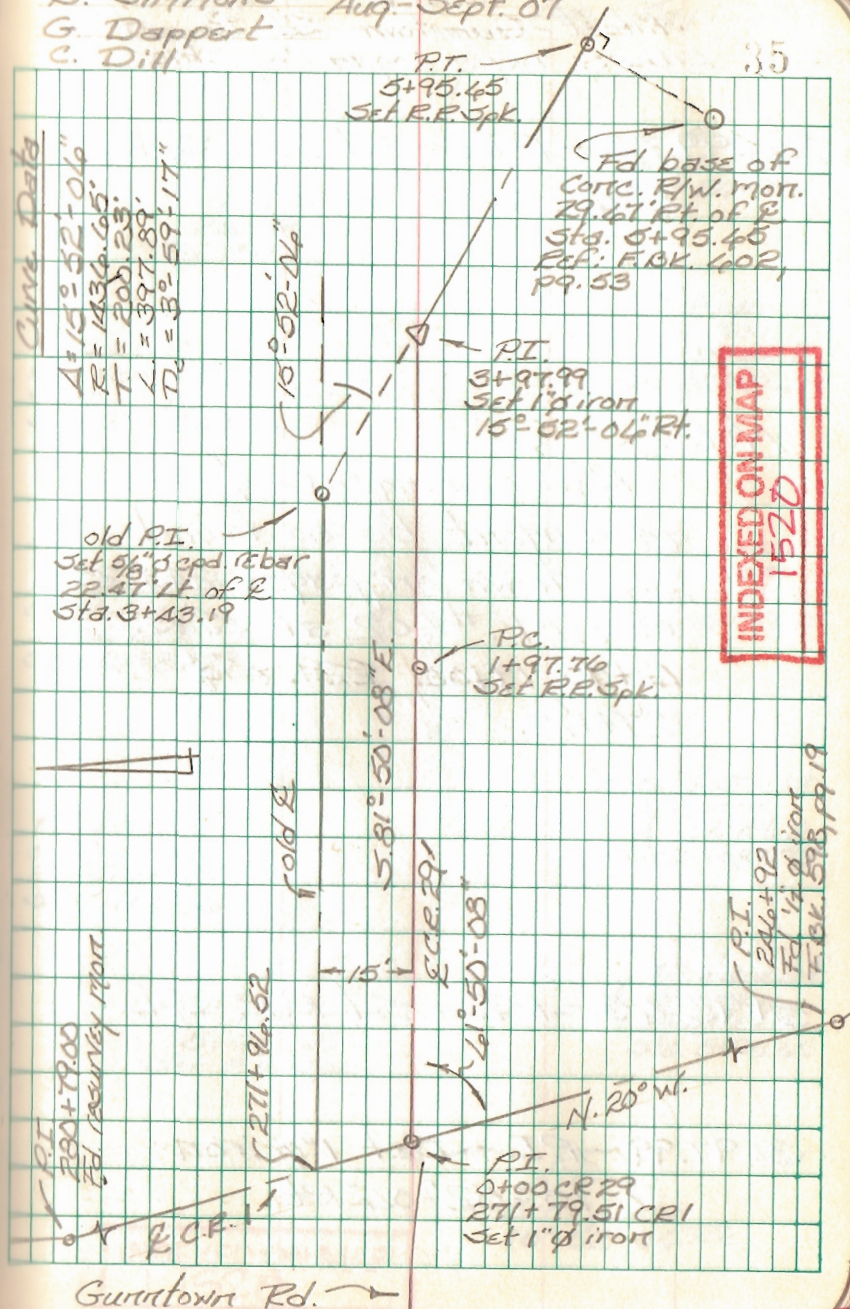 Aug.-Sept. 07
G. Dappert
C. Dill
35
P.T.
5+95.45
Set R.R. Spk.
Fd base of
Conc. R/W. mon.
29.67' Rt. of ℄
Sta. 5+95.45
Ref: F.BK. 602,
pg. 53
Curve Data
Δ = 15°-52'-04"
R = 1436.65'
T = 200.23'
L = 397.89'
Dc = 3°-59'-17"
15°-52'-04"
P.I.
3+97.99
Set 1"ø iron
15°-52'-04" Rt.
INDEXED ON MAP
1520
old P.I.
Set 5/8"ø cpd. rebar
22.47' Lt. of ℄
Sta. 3+43.19
P.C.
1+97.76
Set R.R. Spk.
S.81°-50'-08"E.
old ℄
℄ C.R. 29
15'
61°-50'-08"
P.I.
246+92
F.BK. 598, pg. 19
271+96.52
N. 20° W.
P.I.
280+79.00
Fd. resurvey mon.
℄ C.R. 1
P.I.
0+00 CR 29
271+79.51 CR1
Set 1"ø iron
Gunntown Rd.